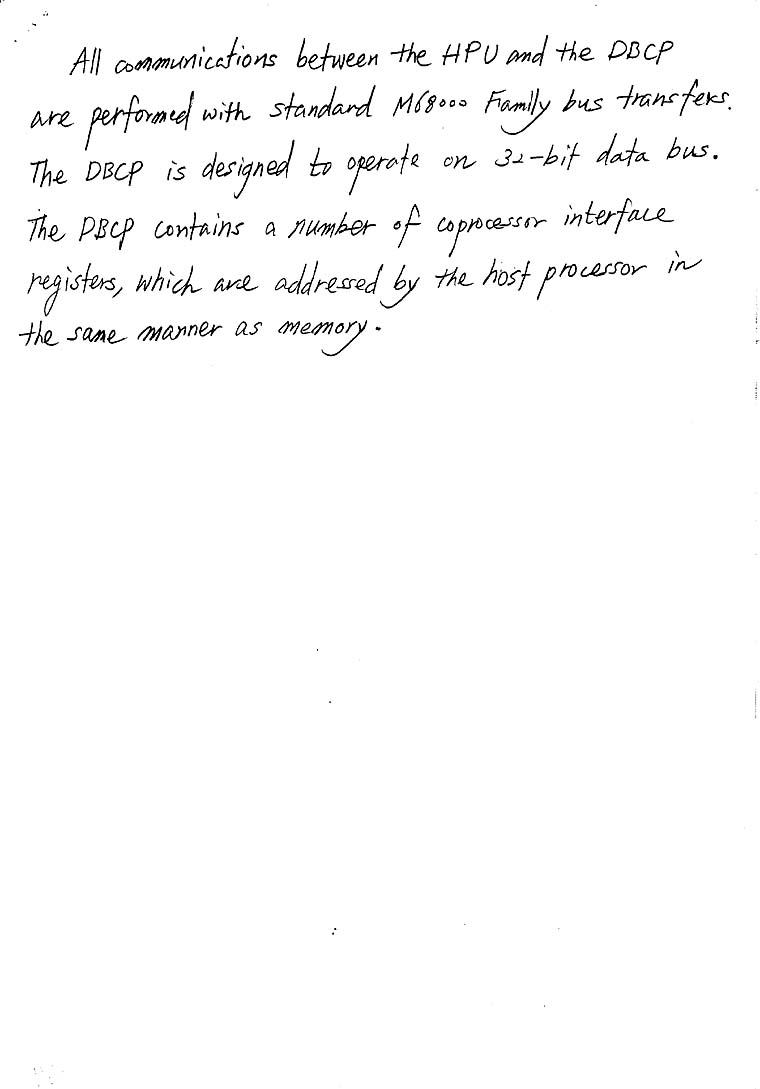 All communications between the HPU and the DBCP
are performed with standard M68000 Family bus transfers.
The DBCP is designed to operate on 32-bit data bus.
The DBCP contains a number of coprocessor interface
registers, which are addressed by the host processor in
the same manner as memory.